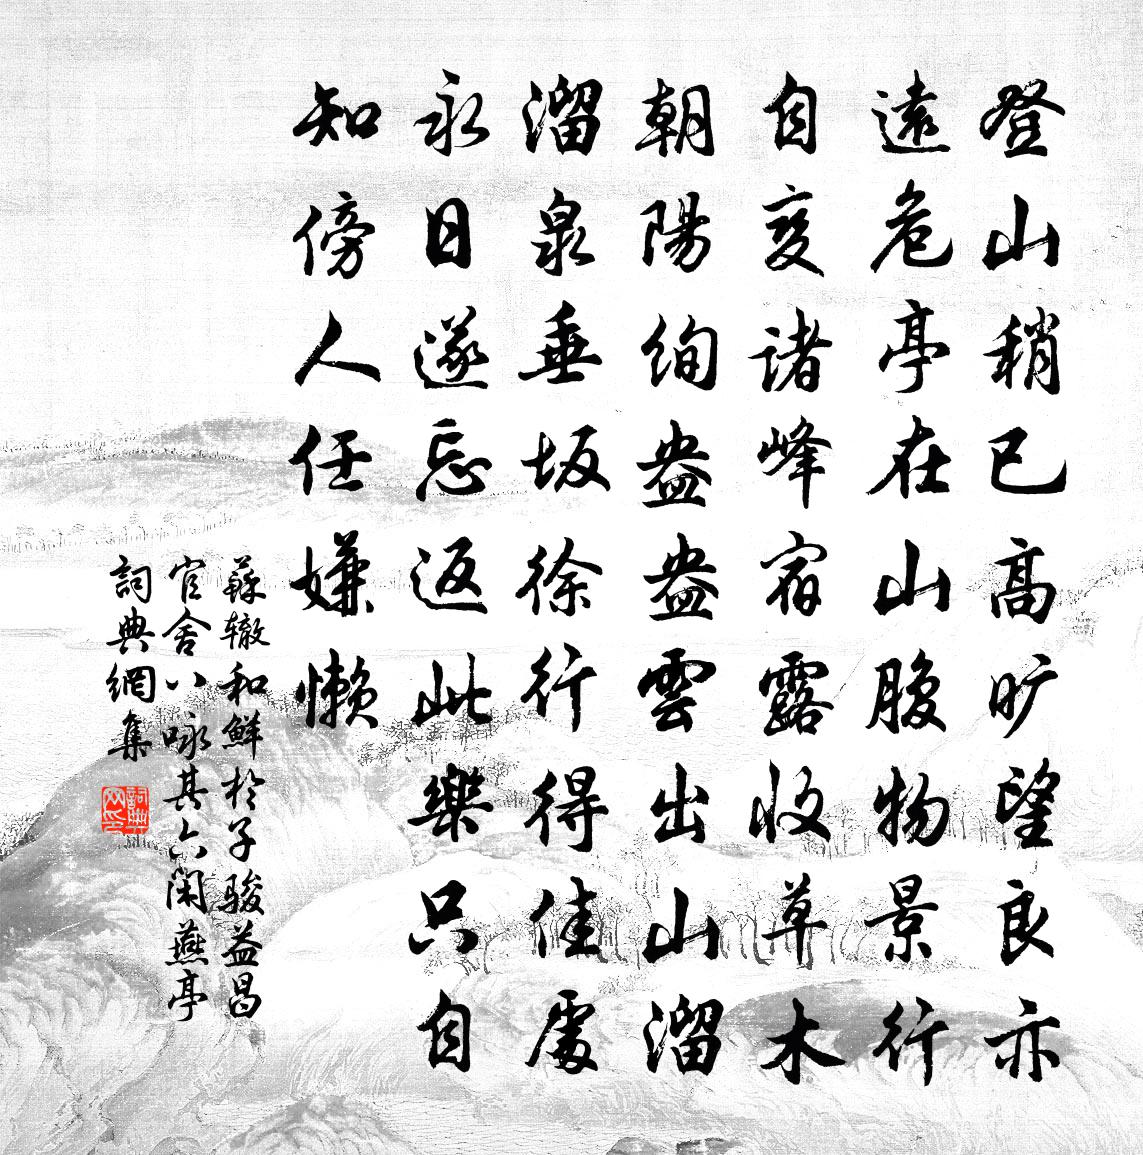 登山稍已高旷望良亦
遠危亭在山腹物景行
自变諸峰宿露收草木
朝陽绚盎盎雲出山溜
溜泉垂坂徐行得佳處
永日遂忘返此樂只自
知傍人任嫌懒
蘇辙和鮮於子骏益昌
官舍八咏其六闲燕亭
詞典網集